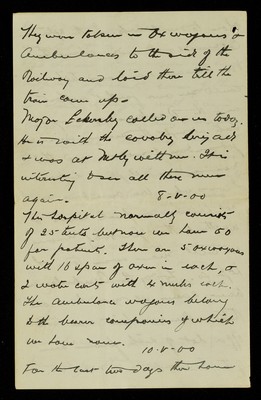 They were taken in Ox wagons &
Ambulances to the side of the
Railway and laid there till the
train came up -
Major Eckersley called on us today.
He is with the cavalry brigade
& was at Netley with me. It is
interesting to see all these men
again. 8-V-00
The hospital normally consists
of 35 tents but now we have 50
for patients. There are 5 ox wagons
with 16 span of oxen in each, &
2 water carts with 4 mules each.
The Ambulance wagons belong
to the bearer companies of which
we have none.
10-V-00
For the last two days there have